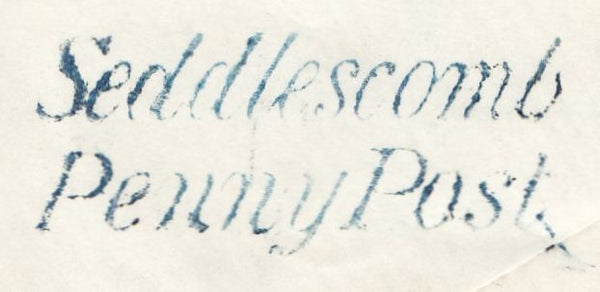 Seddlescomb
Penny Post